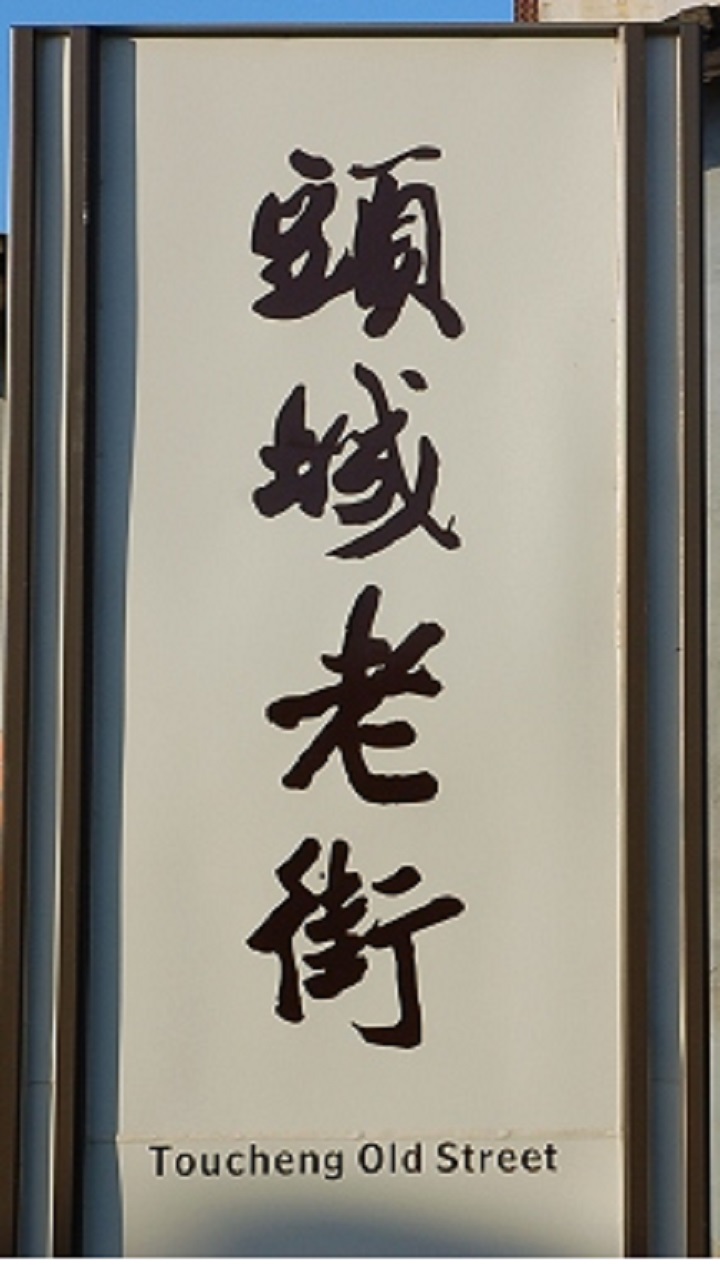 頭城老街
Toucheng Old Street